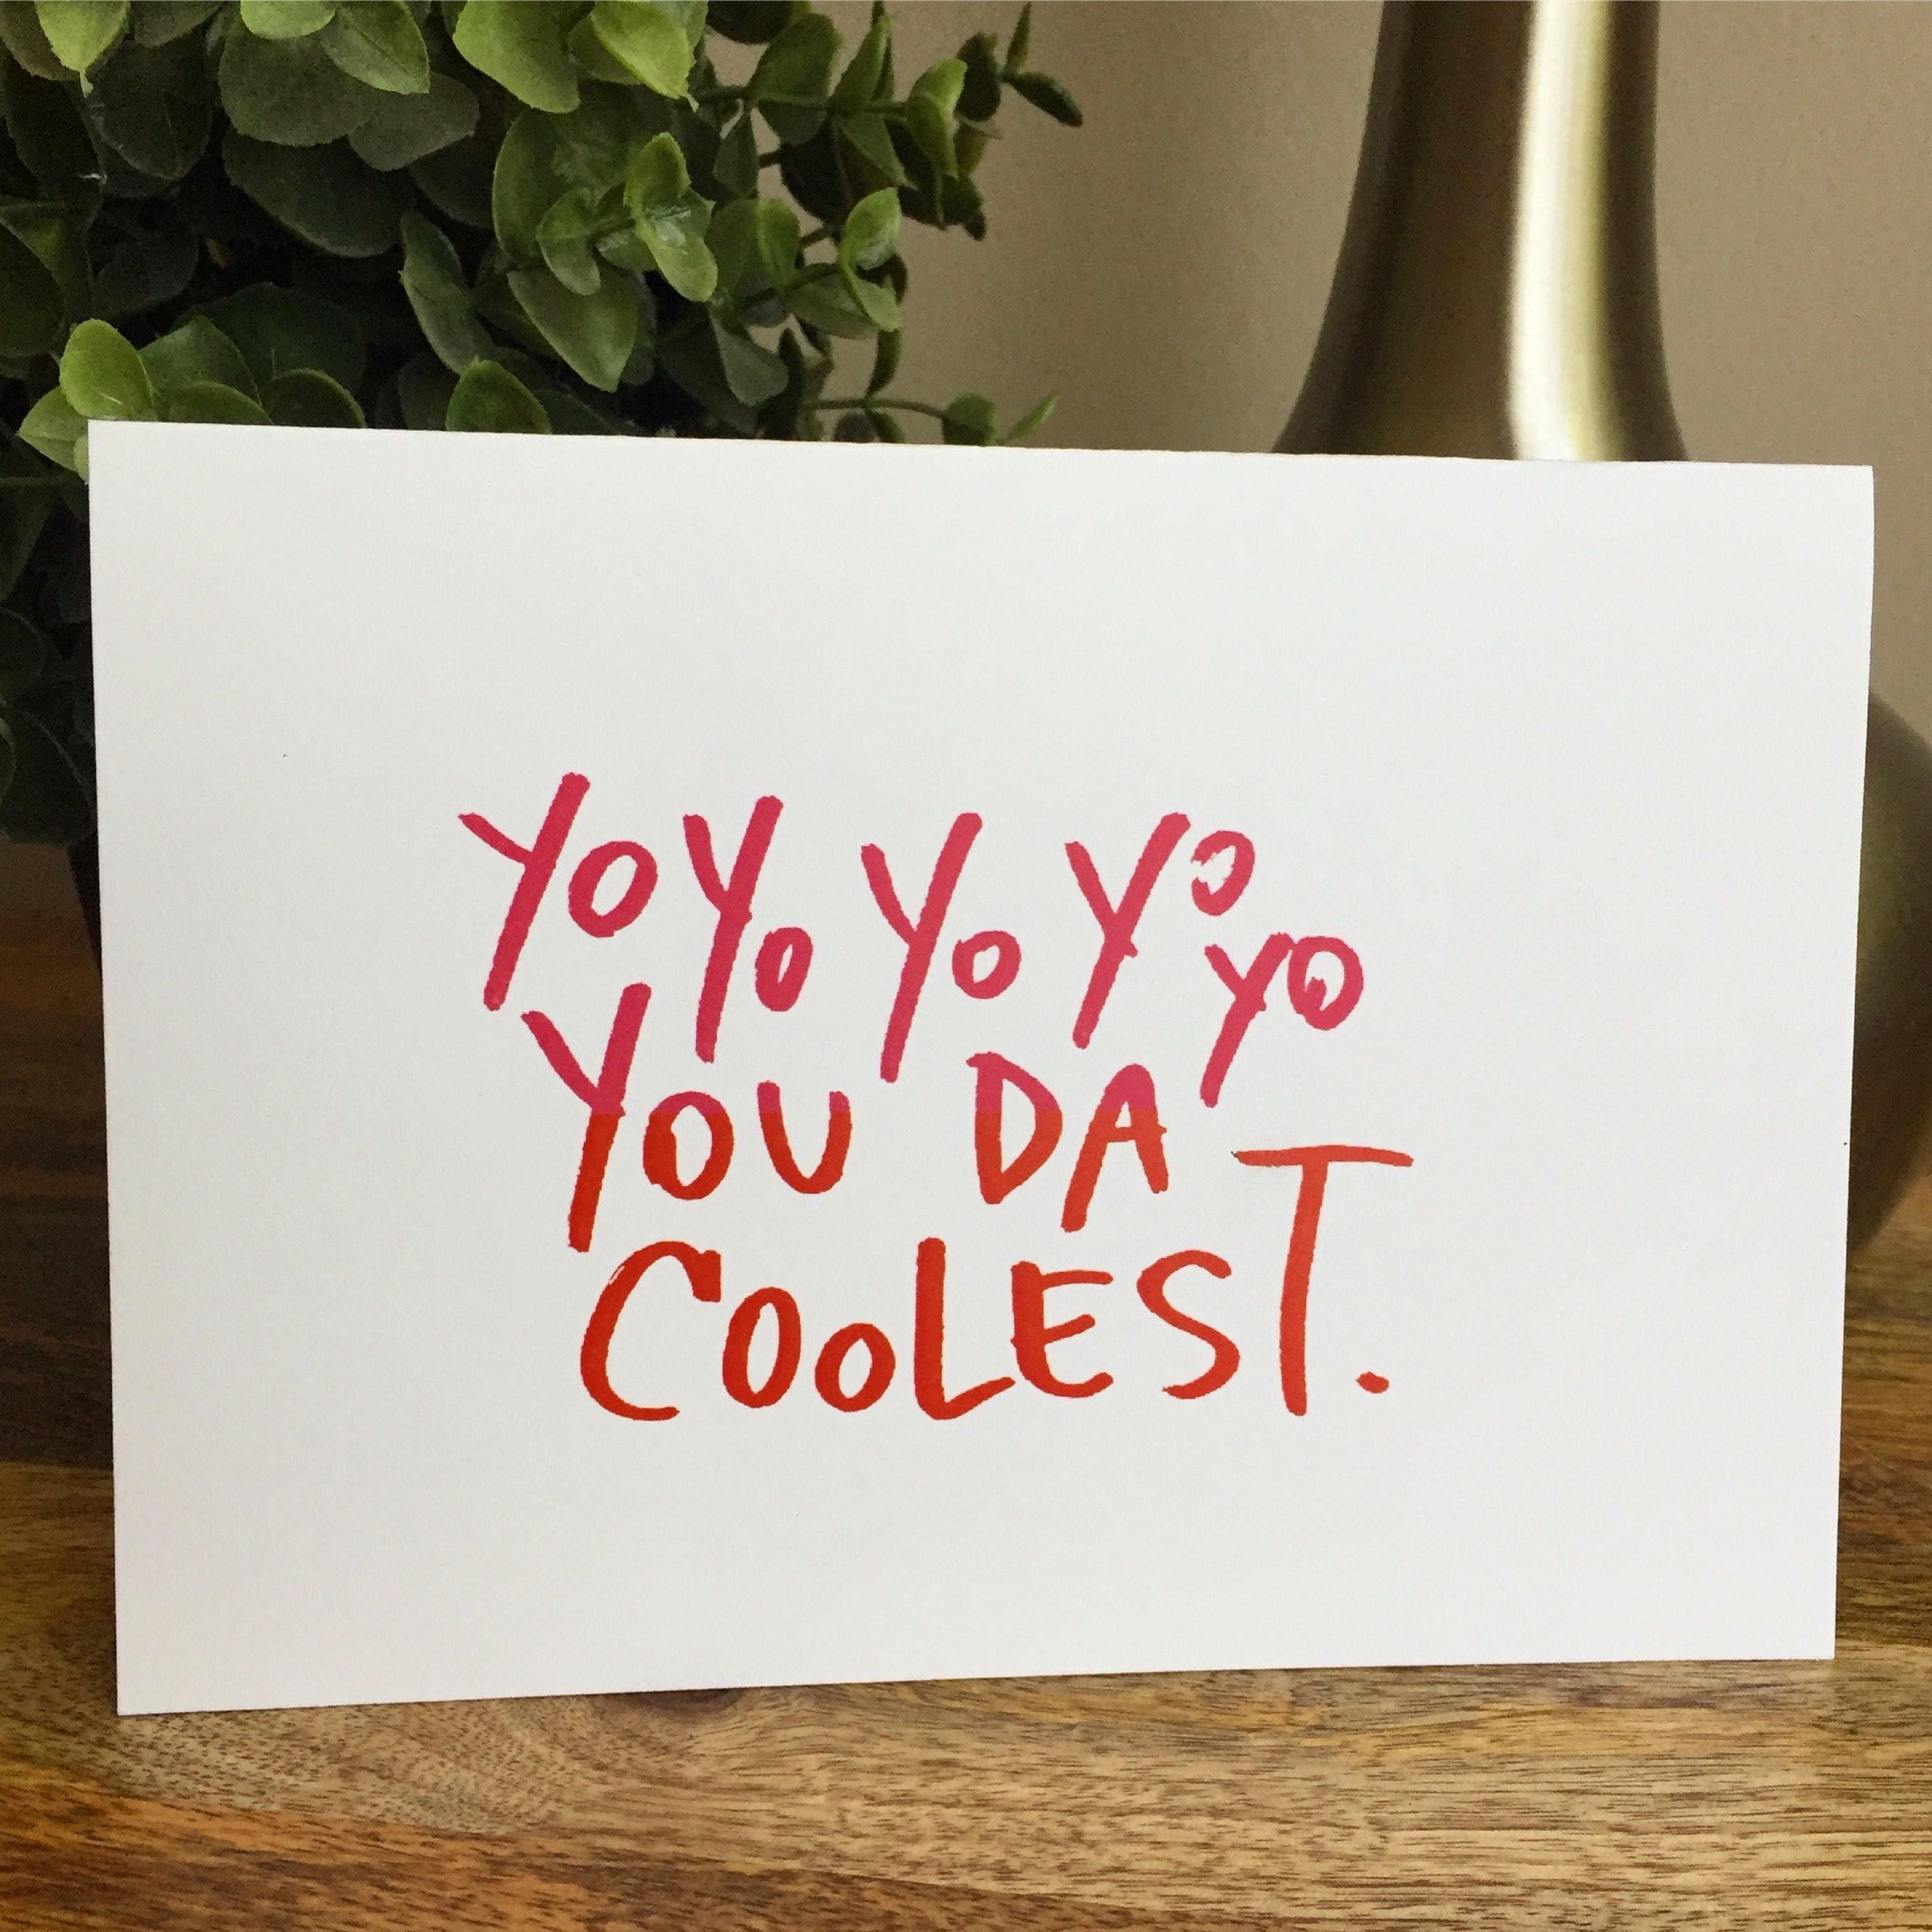 Yo Yo Yo Yo Yo
YOU DA
COOLEST.